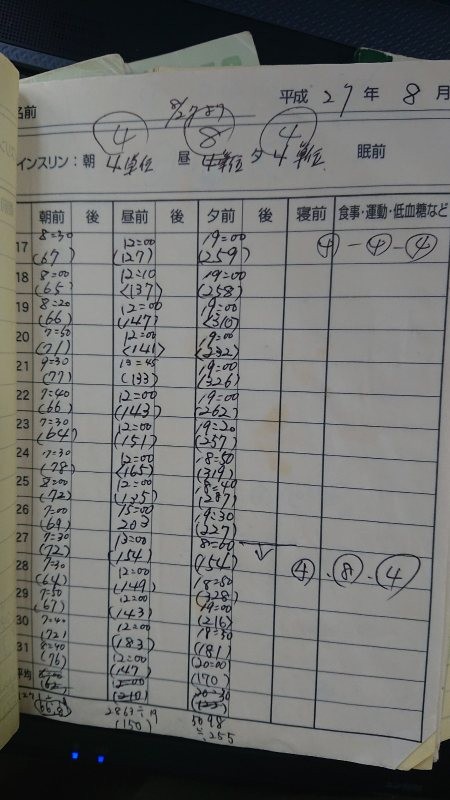 名前 平成 27 年 8 月
8/27より
④ ⑧ ④
インスリン：朝 4単位 昼 4単位 夕 4単位 眠前
朝前 後 昼前 後 夕前 後 寝前 食事・運動・低血糖など
17 8=30 12=00 19=00
(67) (127) (259) ④-④-④
18 8=00 12=10 19=00
(65) <137> (258)
19 8=20 12=00 19=00
(66) (147) <310>
20 12=00 19=00
(71) <141> <232>
21 9=30 19=00
(77) (133) (326)
22 7=40 12=00 19=00
(66) (143) (262)
23 7=30 12=00 19=20
(64) (151) (257)
24 7=30 12=00 18=50
(78) <165) (319)
25 8=00 12=00 18=40
(72) (135) (287)
26 7=00 15=00 19=30
(69) 203 (227)
27 7=30 13=00
(72) (154) (154)
28 7=30 12=00 18=50 ④.⑧.④
(64) (149) (328)
29 7=50 12=00 19=00
(67) (143) (216)
30 7=40 12=00
(72) (183) (181)
31 8=40 12=00 20=00
(76) (147) (170)
平均
(150) 255